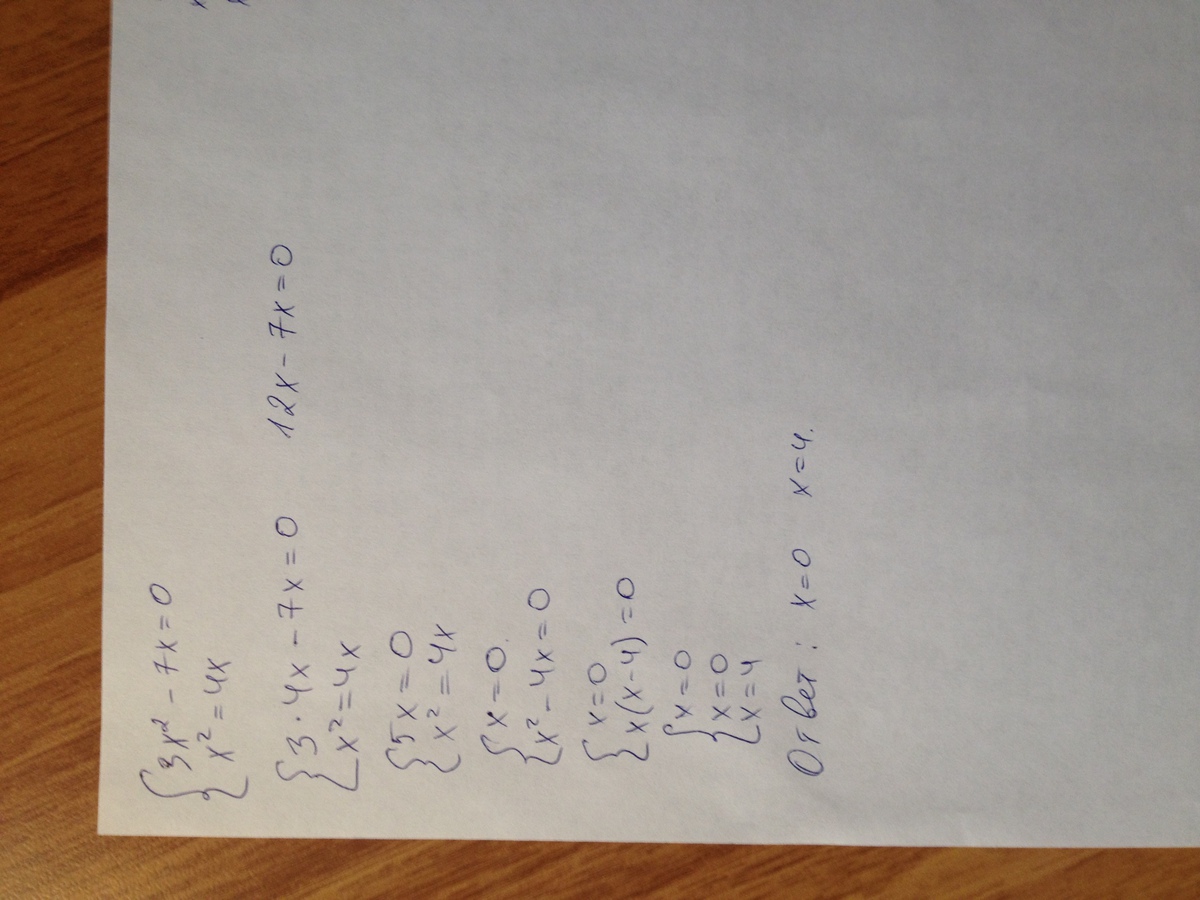 {3x² - 7x = 0
x² = 4x
{3 · 4x - 7x = 0 12x - 7x = 0
x² = 4x
{5x = 0
x² = 4x
{x = 0
x² - 4x = 0
{x = 0
x(x-4) = 0
{x = 0
{x = 0
x = 4
Ответ: x = 0 x = 4.